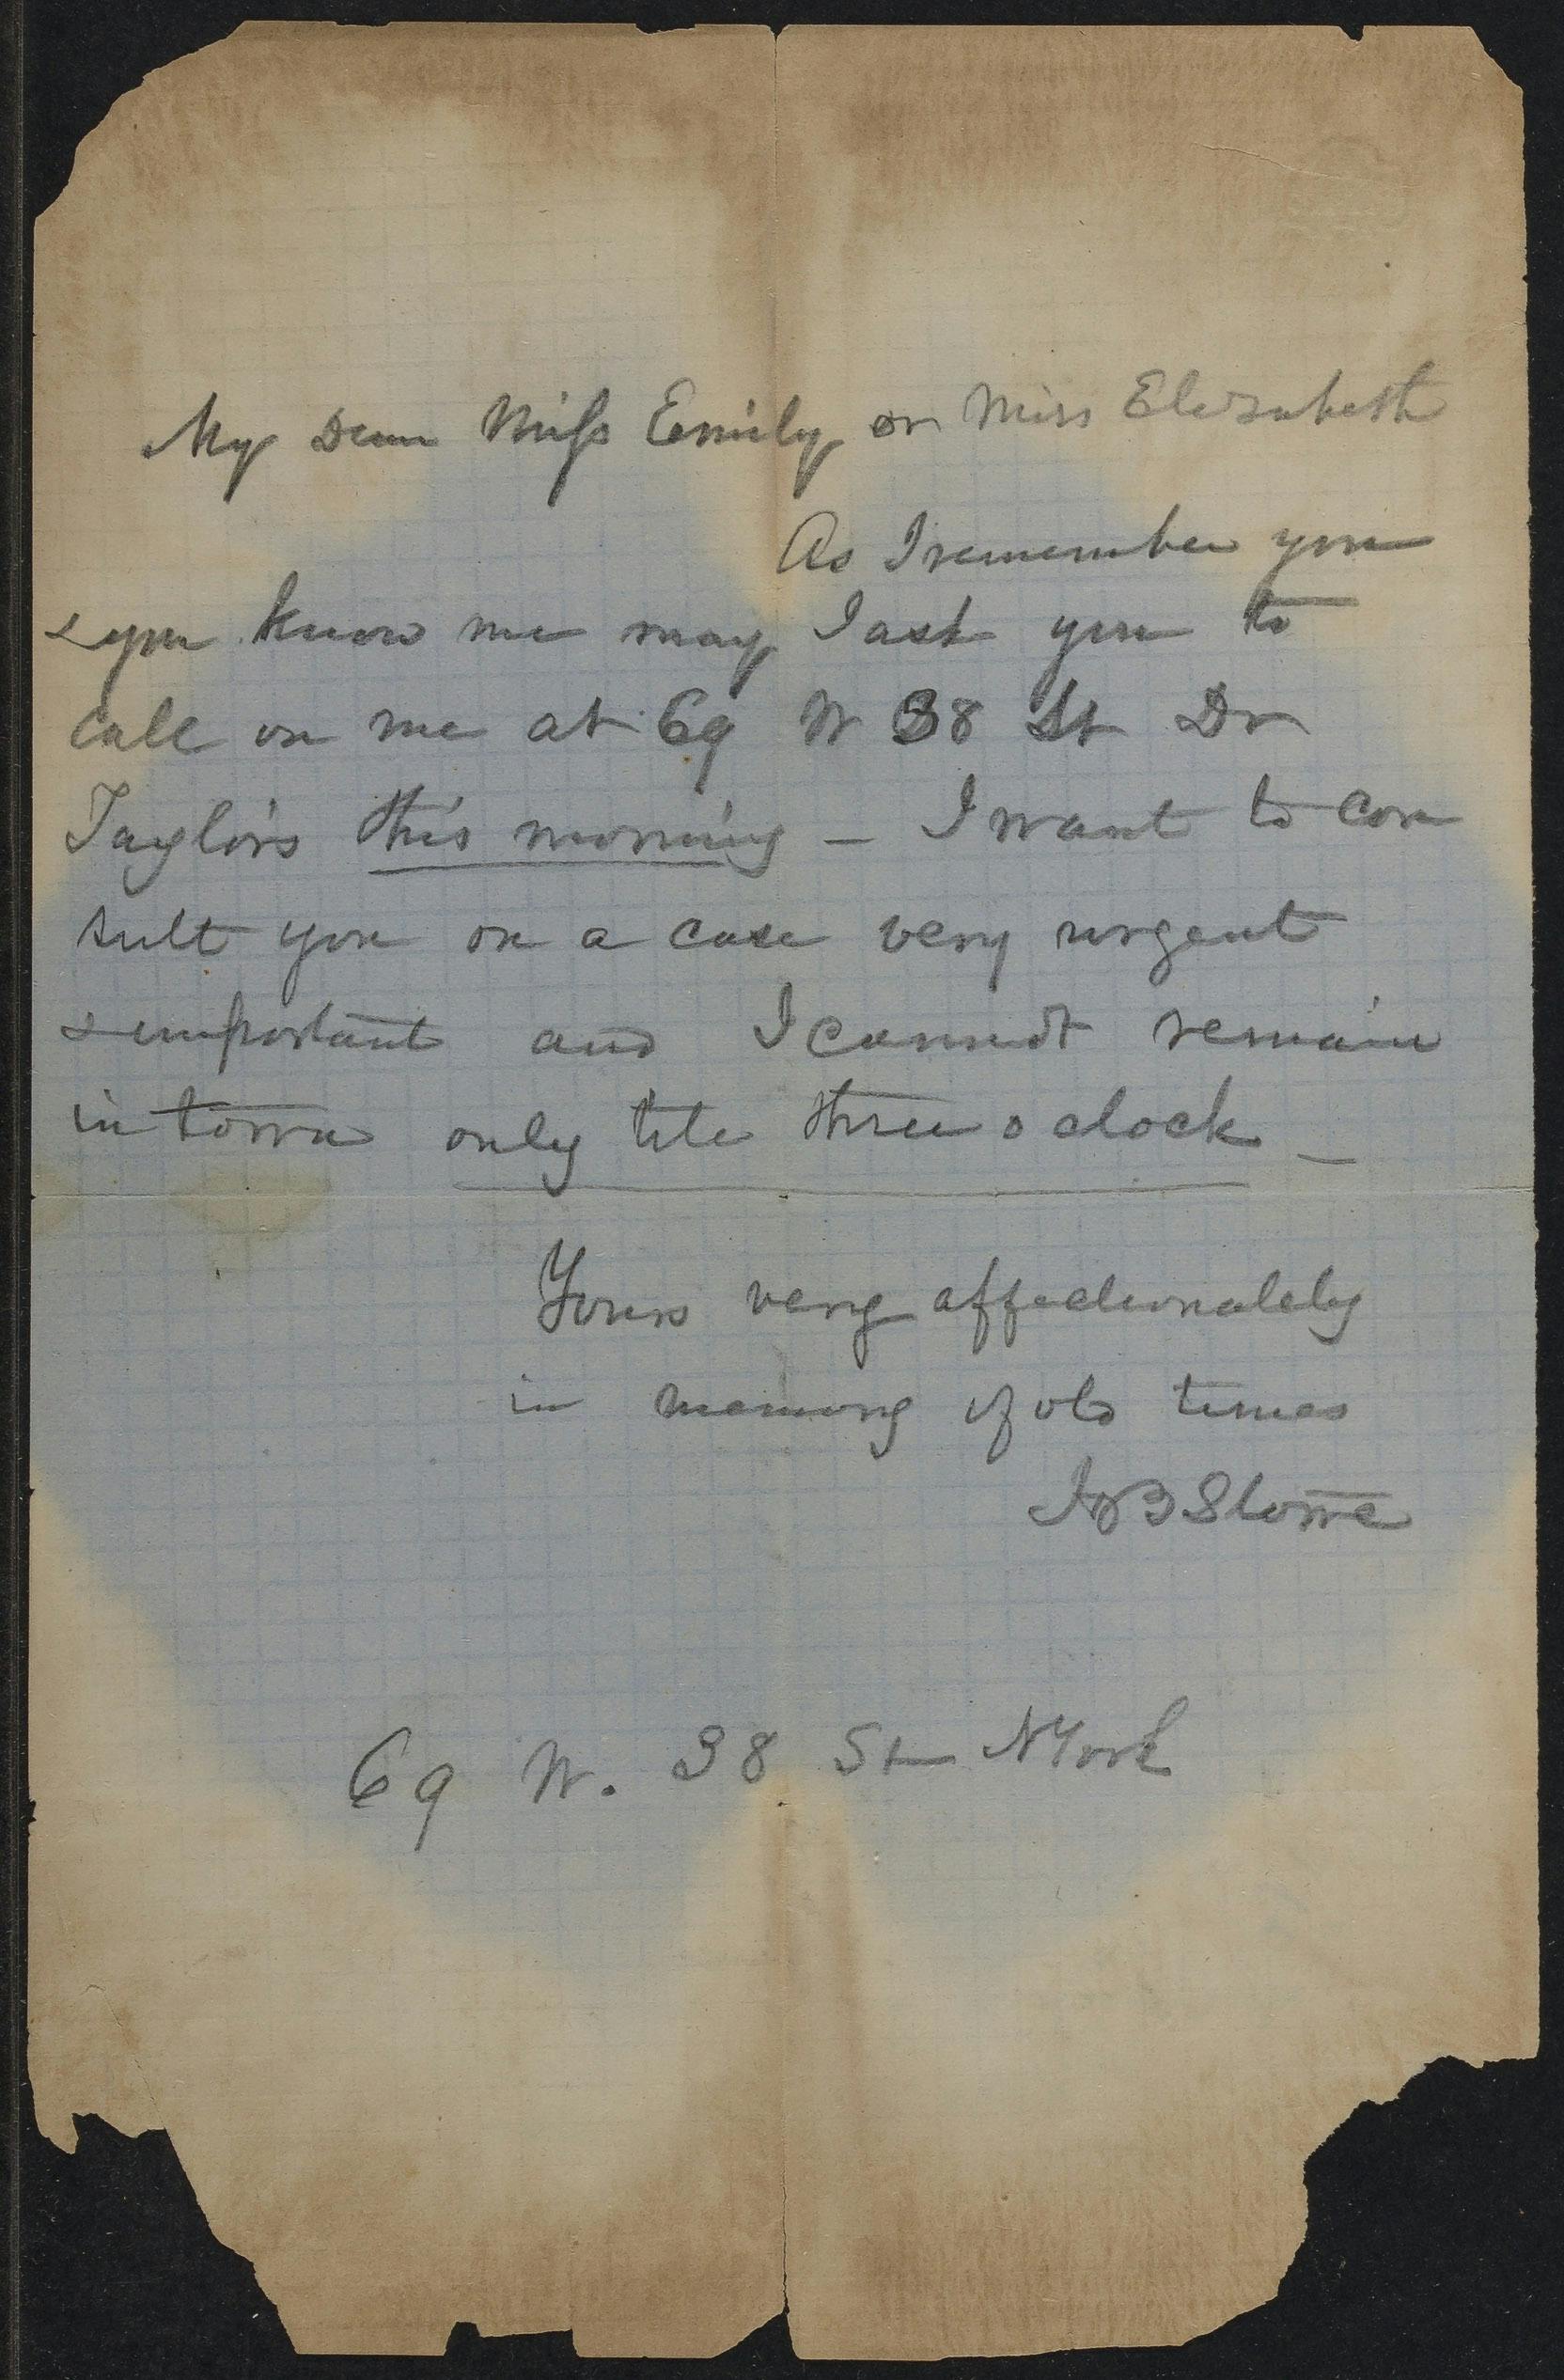 My Dear Miss Emily or Miss Elizabeth
As I remember you
& you know me may I ask you to
call on me at 69 W 38 St Dr
Taylors this morning – I want to con
sult you on a case very urgent
& important and I cannot remain
in town only till three o clock –
Yours very affectionately
in memory of old times
HB Stowe
69 W. 38 St NYork